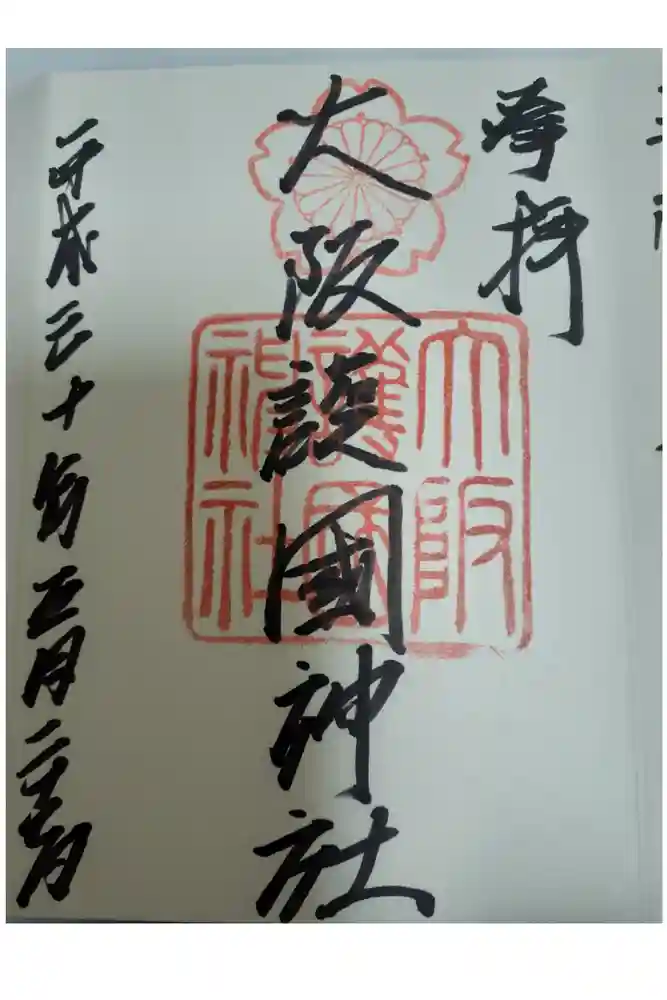 奉拝
大阪護國神社
平成三十年五月二十日
大阪
護國
神社